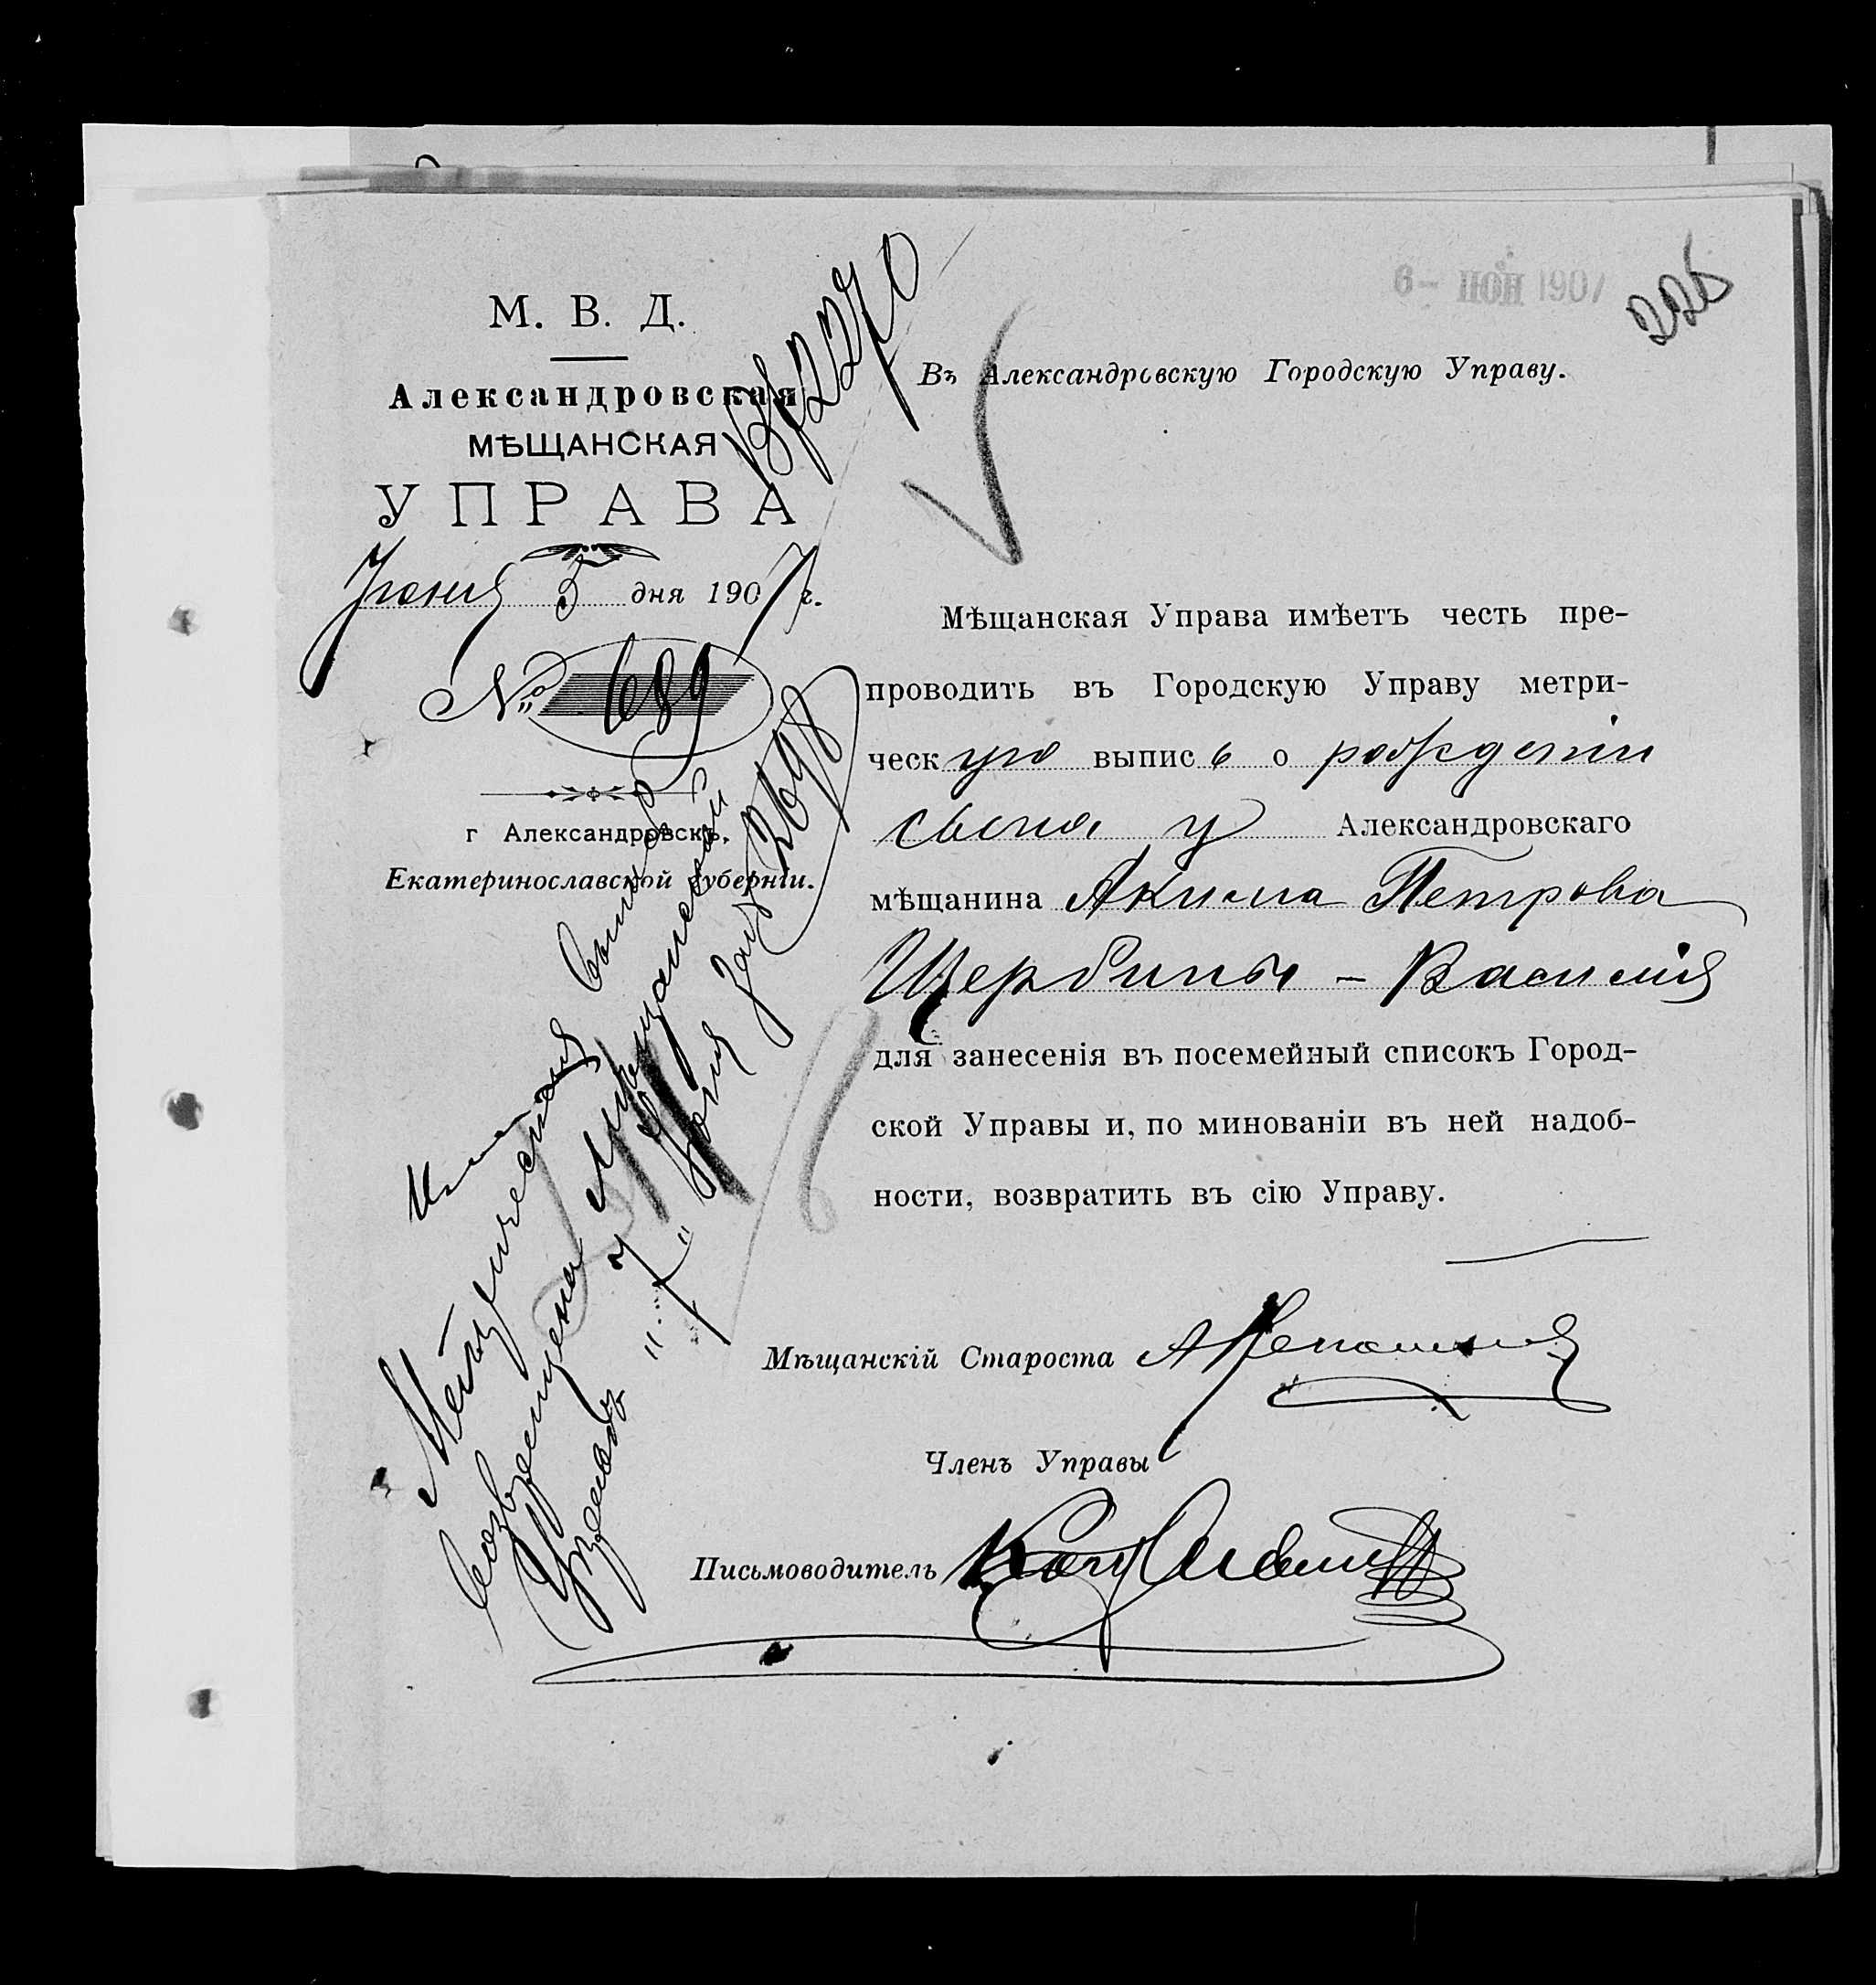 М. В. Д.
Александровская
МѢЩАНСКАЯ
УПРАВА
Іюня 5 дня 1907 г.
№ 689
г Александровскъ.
Екатеринославской губерніи.
Вх 2270
6 - ІЮН 1907
226
Въ Александровскую Городскую Управу.
Мѣщанская Управа имѣетъ честь пре-
проводить въ Городскую Управу метри-
ческую выпись о рожденіи
сына у Александровскаго
мѣщанина Акима Петрова
Щербины - Василія
для занесенія въ посемейный списокъ Город-
ской Управы и, по минованіи въ ней надоб-
ности, возвратить въ сію Управу.
Мѣщанскій Староста
Членъ Управы
Письмоводитель
Метрическая выпись
возвращена Мѣщанской
Управѣ "7" Іюня за № 2698